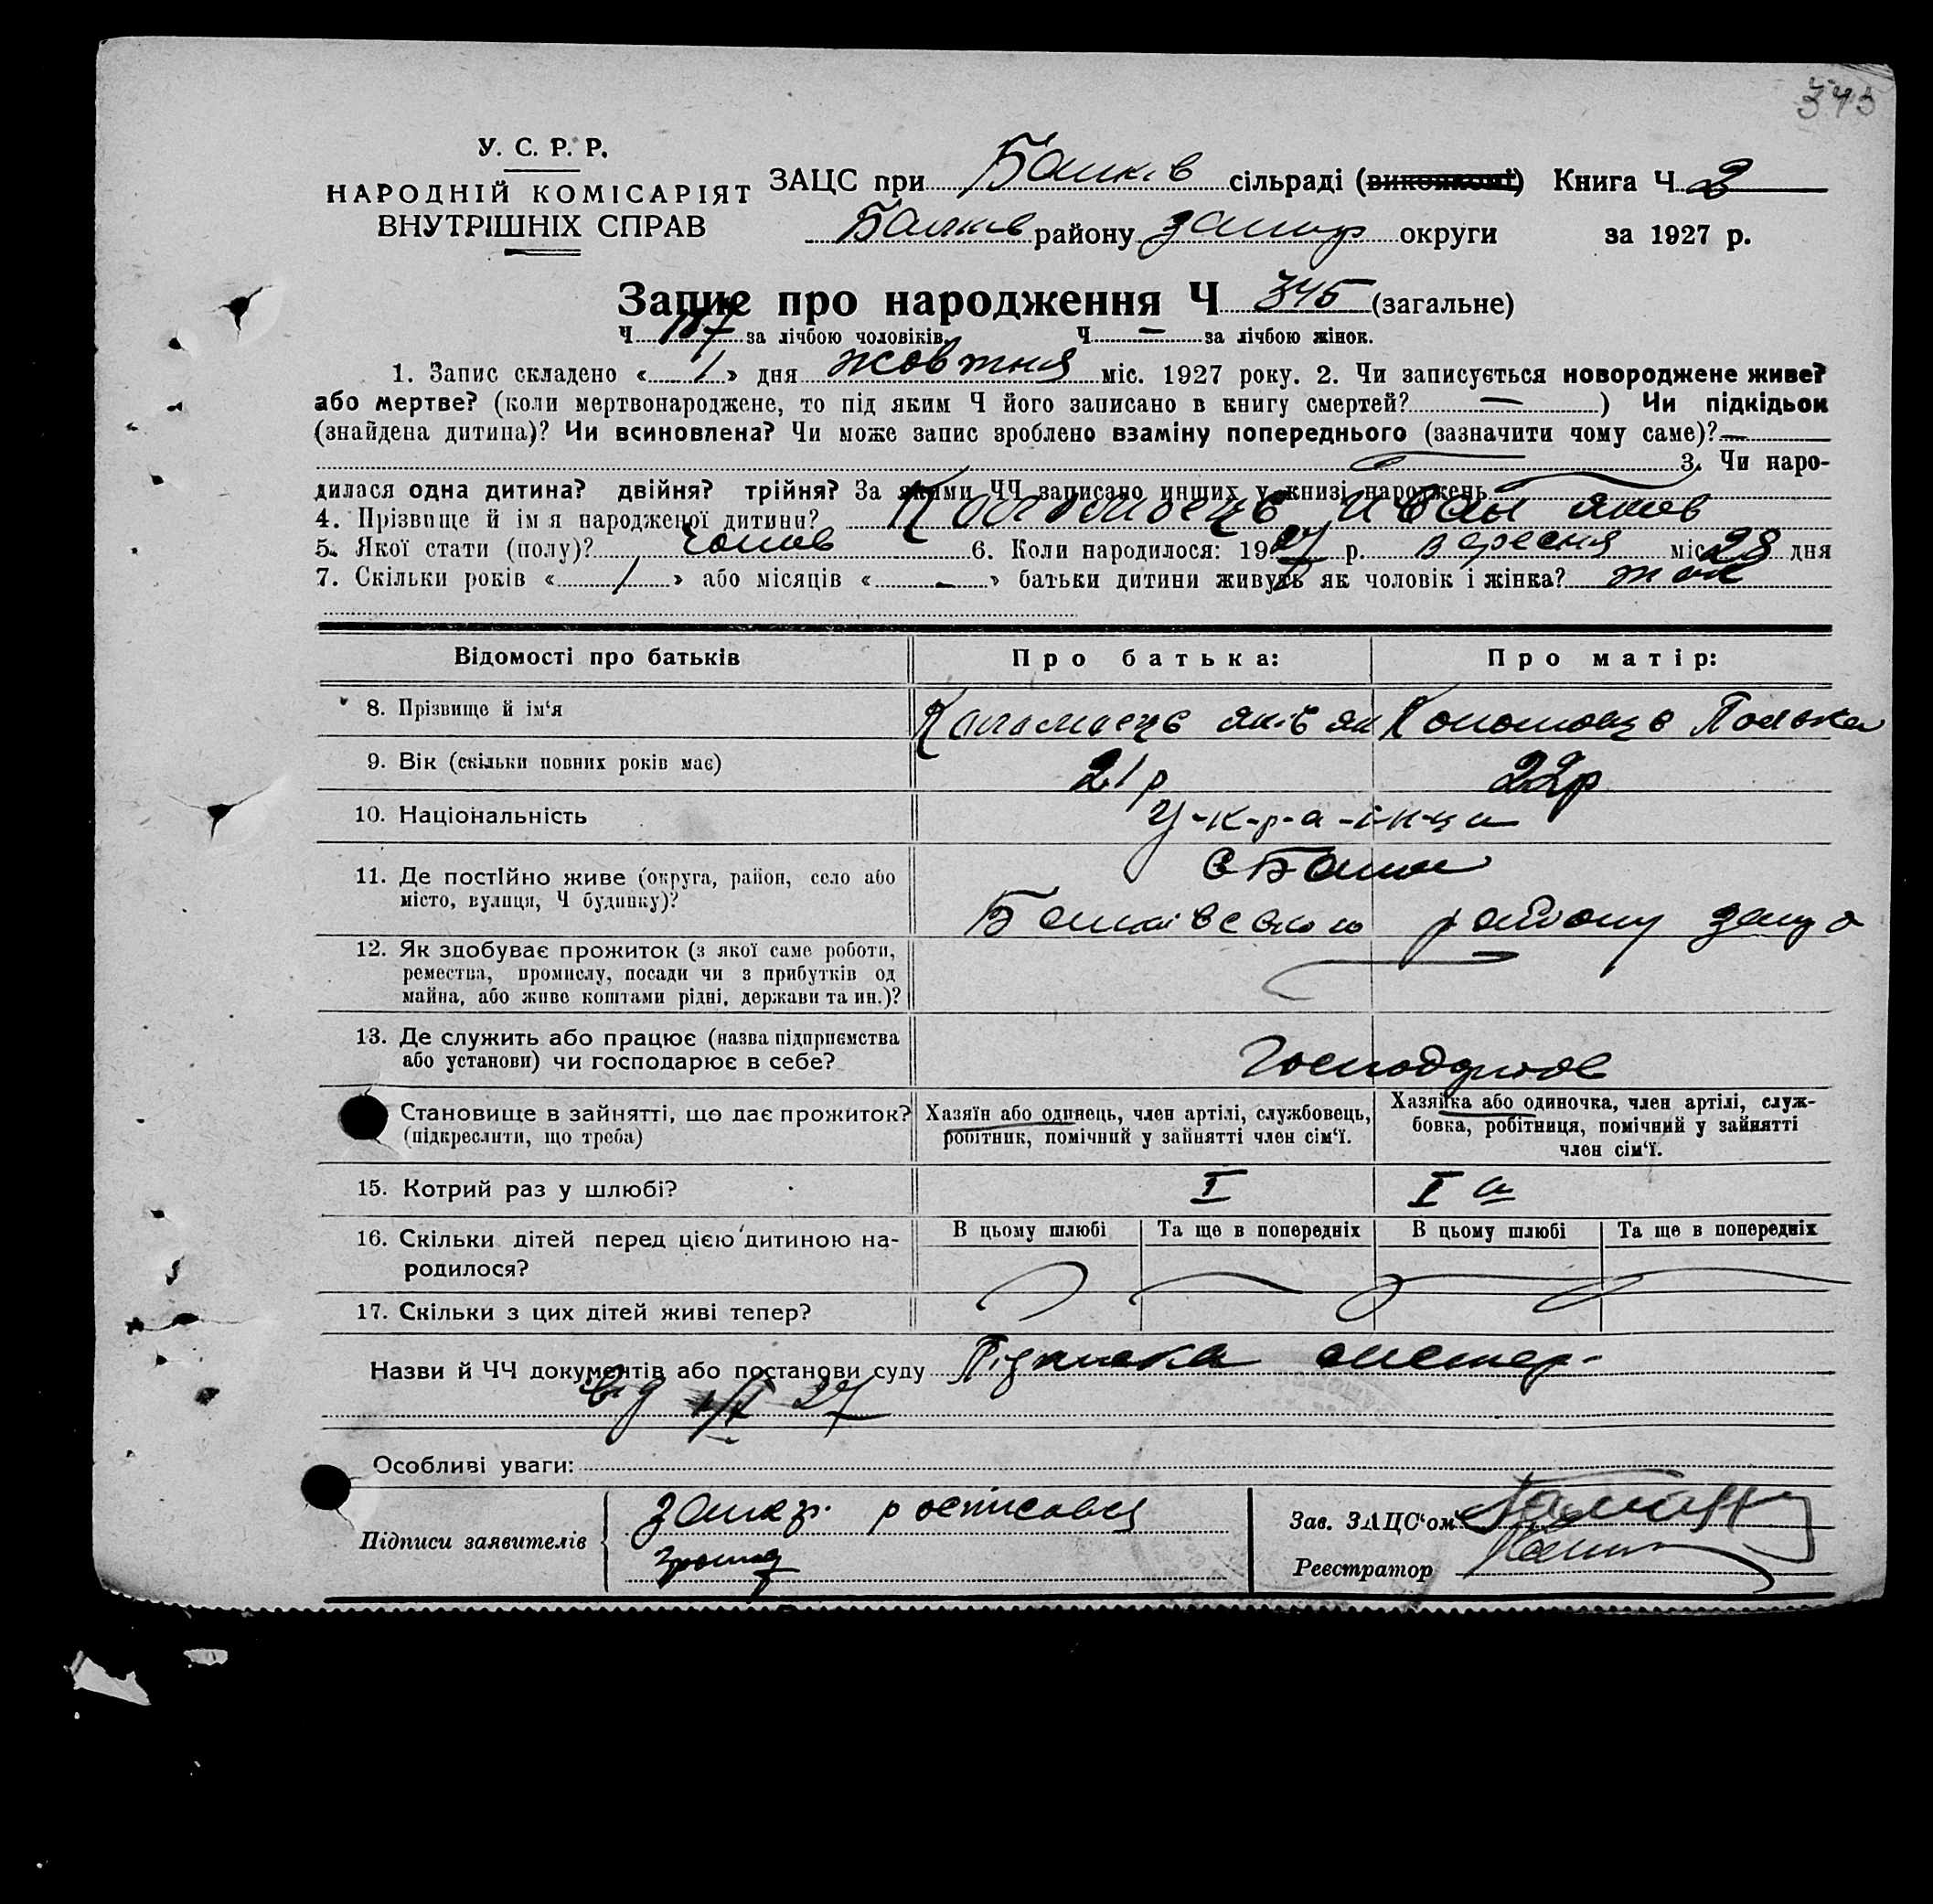 345
У. С. Р. Р.
НАРОДНІЙ КОМІСАРІЯТ
ВНУТРІШНІХ СПРАВ
ЗАЦС при Балків сільраді (виконкомі) Книга Ч 2
Балків району округи за 1927 р.
Запис про народження Ч 345 (загальне)
Ч 187 за лічбою чоловіків. Ч — за лічбою жінок.
1. Запис складено « 1 » дня жовтня міс. 1927 року. 2. Чи записується новороджене живе?
або мертве? (коли мертвонароджене, то під яким Ч його записано в книгу смертей? — ) Чи підкідьок
(знайдена дитина)? Чи всиновлена? Чи може запис зроблено взаміну попереднього (зазначити чому саме)? —
3. Чи наро-
дилася одна дитина? двійня? трійня? За якими ЧЧ записано инших у книзі народжень
4. Прізвище й ім я народженої дитини? Коломоець Иван Яков
5. Якої стати (полу)? чолов 6. Коли народилося: 1927 р. вересня міс. 28 дня
7. Скільки років « 1 » або місяців « - » батьки дитини живуть як чоловік і жінка? так
Відомості про батьків Про батька: Про матір:
8. Прізвище й ім'я Коломоець Яків Як Коломоець
9. Вік (скільки повних років має) 21 р 22 р
10. Національність У-к-р-а-ї-н-ц-и
11. Де постійно живе (округа, район, село або
місто, вулиця, Ч будинку)? с Балки
Балківського району
12. Як здобуває прожиток (з якої саме роботи,
ремества, промислу, посади чи з прибутків од
майна, або живе коштами рідні, держави та ин.)?
13. Де служить або працює (назва підприємства
або установи) чи господарює в себе?
Становище в зайнятті, що дає прожиток?
(підкреслити, що треба)
Хазяїн або одинець, член артілі, службовець,
робітник, помічний у зайнятті член сім'ї.
Хазяйка або одиночка, член артілі, служ-
бовка, робітниця, помічний у зайнятті
член сім'ї.
15. Котрий раз у шлюбі? I I а
16. Скільки дітей перед цією дитиною на-
родилося?
В цьому шлюбі Та ще в попередніх В цьому шлюбі Та ще в попередніх
17. Скільки з цих дітей живі тепер?
Назви й ЧЧ документів або постанови суду Підписка
від 1/X 27
Особливі уваги:
Підписи заявителів
Зав. ЗАЦС'ом
Реєстратор